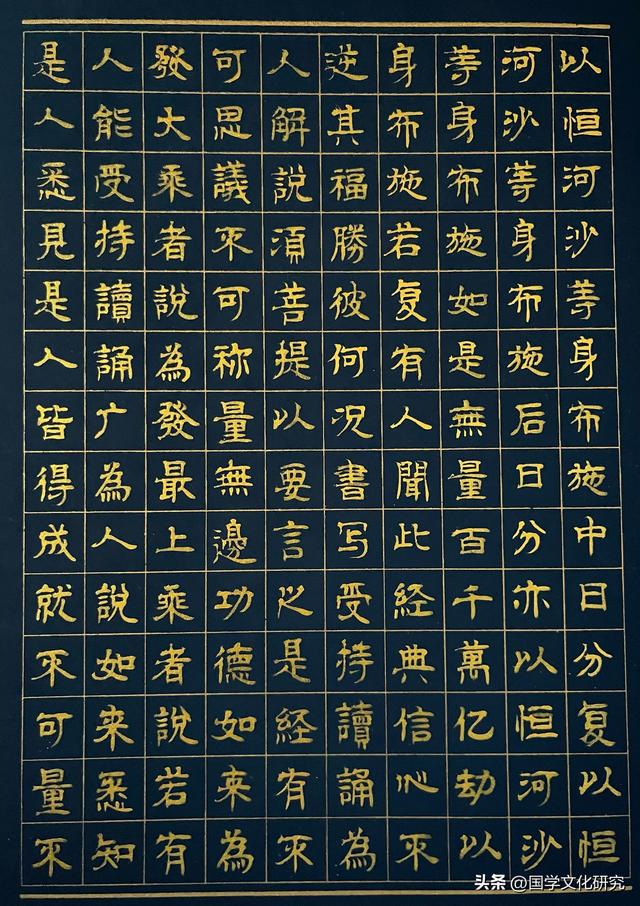 以恒河沙等身布施中日分复以恒
河沙等身布施后日分亦以恒河沙
等身布施如是無量百千萬亿劫以
身布施若复有人聞此経典信心不
逆其福勝彼何况書写受持讀誦為
人解說須菩提以要言之是経有不
可思議不可称量無邊功德如来為
發大乘者說為發最上乘者說若有
人能受持讀誦广為人說如来悉知
是人悉見是人皆得成就不可量不
头条 @国学文化研究